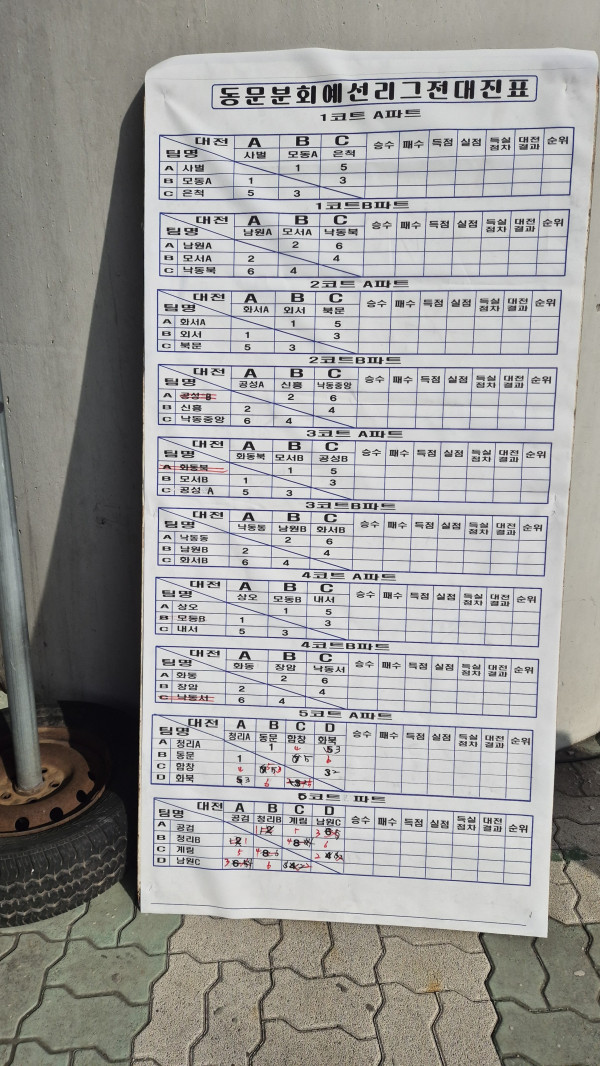 동문분회예선리그전대진표
1코트 A파트
대전 A B C 승수 패수 득점 실점 득실점차 대전결과 순위
팀명 사벌 모동A 은척
A 사벌 1 5
B 모동A 1 3
C 은척 5 3
1코트B파트
대전 A B C 승수 패수 득점 실점 득실점차 대전결과 순위
팀명 남원A 모서A 낙동북
A 남원A 2 6
B 모서A 2 4
C 낙동북 6 4
2코트 A파트
대전 A B C 승수 패수 득점 실점 득실점차 대전결과 순위
팀명 화서A 외서 북문
A 화서A 1 5
B 외서 1 3
C 북문 5 3
2코트B파트
대전 A B C 승수 패수 득점 실점 득실점차 대전결과 순위
팀명 공성A 신흥 낙동중앙
A 공성 B 2 6
B 신흥 2 4
C 낙동중앙 6 4
3코트 A파트
대전 A B C 승수 패수 득점 실점 득실점차 대전결과 순위
팀명 화동북 모서B 공성B
A 화동북 1 5
B 모서B 1 3
C 공성 A 5 3
3코트B파트
대전 A B C 승수 패수 득점 실점 득실점차 대전결과 순위
팀명 낙동동 남원B 화서B
A 낙동동 2 6
B 남원B 2 4
C 화서B 6 4
4코트 A파트
대전 A B C 승수 패수 득점 실점 득실점차 대전결과 순위
팀명 상오 모동B 내서
A 상오 1 5
B 모동B 1 3
C 내서 5 3
4코트B파트
대전 A B C 승수 패수 득점 실점 득실점차 대전결과 순위
팀명 화동 장암 낙동서
A 화동 2 6
B 장암 2 4
C 낙동서 6 4
5코트 A파트
대전 A B C D 승수 패수 득점 실점 득실점차 대전결과 순위
팀명 정리A 동문 함창 화북
A 정리A 1 4 3
B 동문 1 5 6
C 함창 4 2
D 화북 3 6
6코트 파트
대전 A B C D 승수 패수 득점 실점 득실점차 대전결과 순위
팀명 공검 정리B 계림 남원C
A 공검 1 5 3
B 정리B 1 4 6
C 계림 5 4 2
D 남원C 3 6